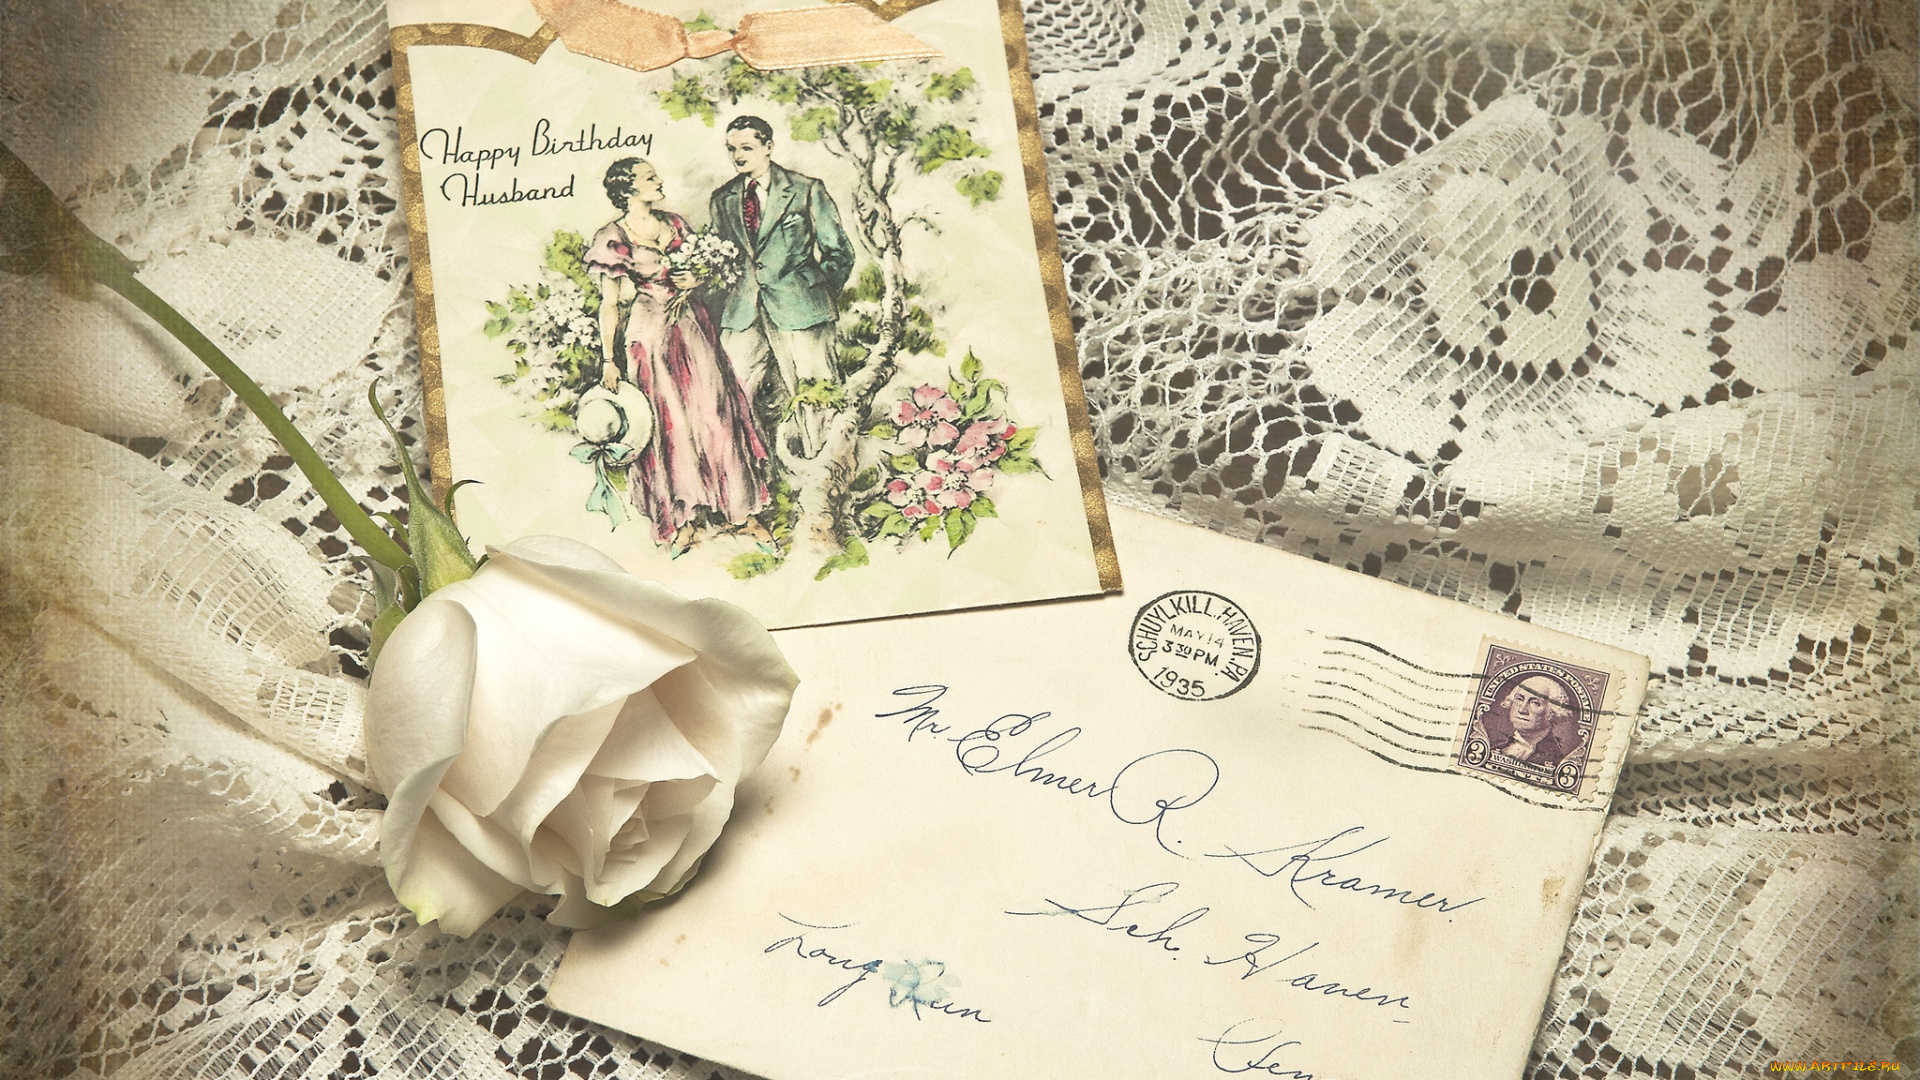 Happy Birthday
Husband
SCHUYLKILL.HAVEN.PA.
MAY 14
3 30 PM
1935
UNITED STATES POSTAGE
3 WASHINGTON 3
CENTS
Mr. Elmer R. Kramer.
Sch. Haven
Long Run
Pen
WWW.ARTFILE.RU